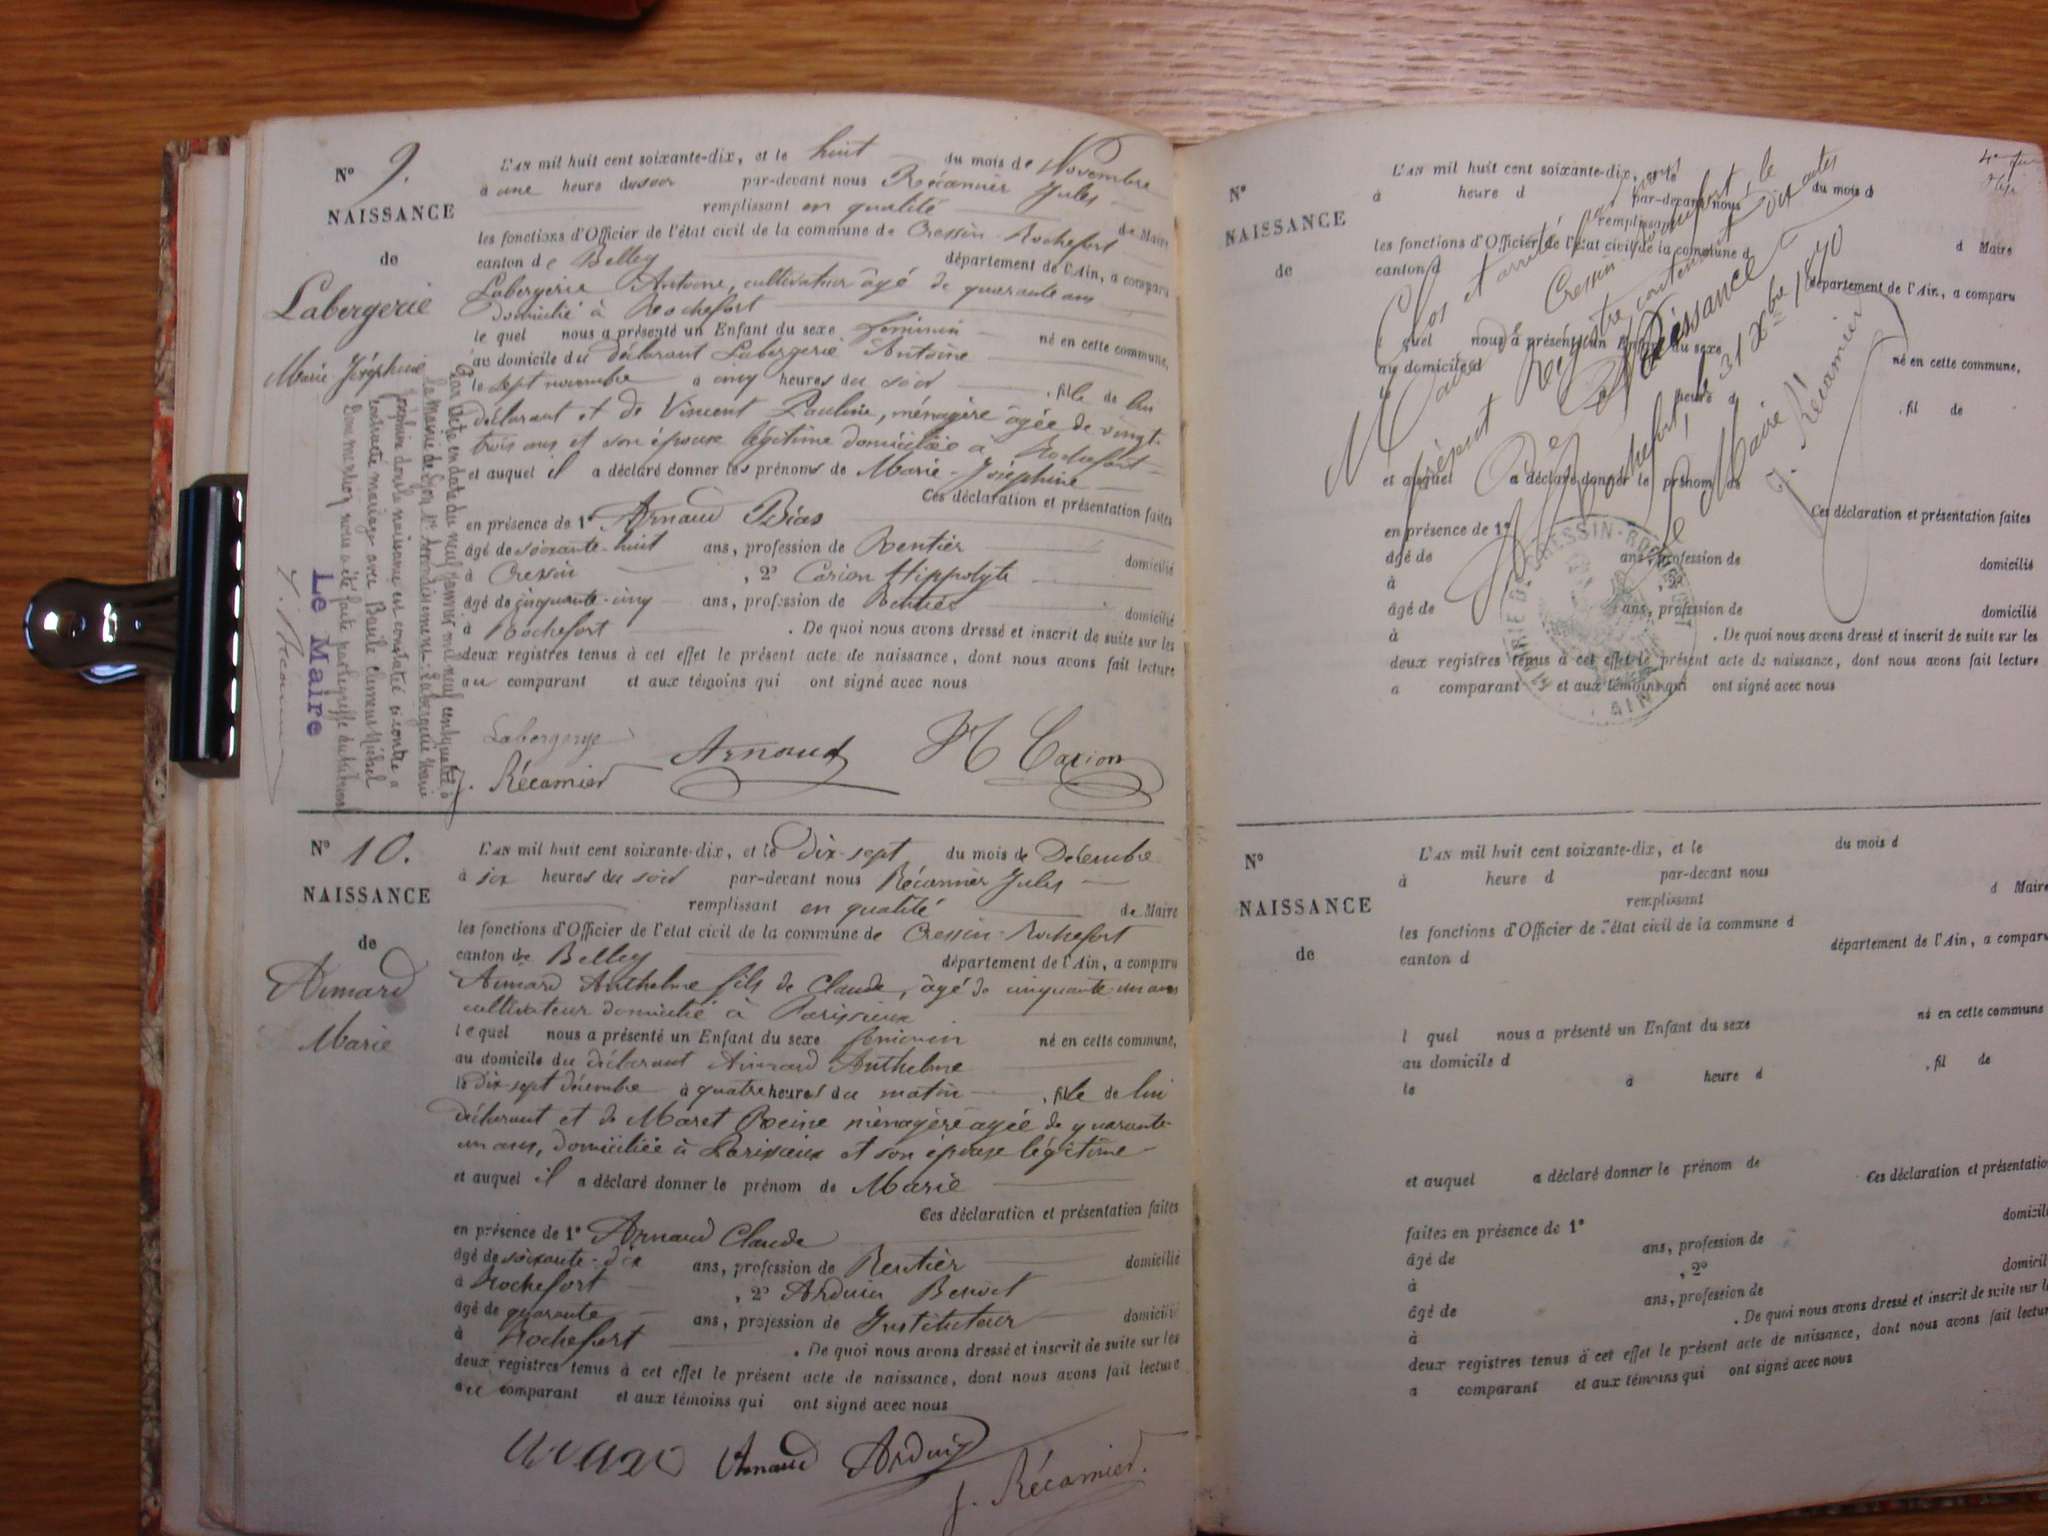 N° 9.
NAISSANCE
de
Labergerie
Marie Joséphine
L'AN mil huit cent soixante-dix, et le huit du mois de Novembre
à une heure du soir par-devant nous Récamier Jules
remplissant en qualité de Maire
les fonctions d'Officier de l'état civil de la commune de Cressin-Rochefort
canton de Belley département de l'Ain, a comparu
Labergerie Antoine, cultivateur âgé de quarante ans
domicilié à Rochefort
le quel nous a présenté un Enfant du sexe féminin né en cette commune,
au domicile du déclarant Labergerie Antoine
le sept novembre à cinq heures du soir, fille de lui
déclarant et de Vincent Pauline, ménagère âgée de vingt-
trois ans et son épouse légitime domiciliée à Rochefort
et auquel il a déclaré donner les prénoms de Marie-Joséphine
Ces déclaration et présentation faites
en présence de 1° Arnaud
âgé de soixante-huit ans, profession de Rentier domicilié
à Cressin, 2° Carion Hippolyte
âgé de cinquante-cinq ans, profession de Rentier domicilié
à Rochefort. De quoi nous avons dressé et inscrit de suite sur les
deux registres tenus à cet effet le présent acte de naissance, dont nous avons fait lecture
au comparant et aux témoins qui ont signé avec nous
Labergerye Arnaud H Carion
J. Récamier
Par acte en date du neuf janvier mil neuf cent quatre à
la mairie de Lyon Arrondissement Labergerie Marie
Joséphine dont la naissance est constatée ci contre a
contracté mariage avec Michel
Le Maire
J. Récamier
N° 10.
NAISSANCE
de
Aimard
Marie
L'AN mil huit cent soixante-dix, et le dix-sept du mois de Décembre
à six heures du soir par-devant nous Récamier Jules
remplissant en qualité de Maire
les fonctions d'Officier de l'état civil de la commune de Cressin-Rochefort
canton de Belley département de l'Ain, a comparu
Aimard Anthelme fils de Claude, âgé de cinquante un ans
cultivateur domicilié à Parissieux
le quel nous a présenté un Enfant du sexe féminin né en cette commune,
au domicile du déclarant Aimard Anthelme
le dix-sept décembre à quatre heures du matin, fille de lui
déclarant et de Maret Reine ménagère agée de quarante-
un ans, domiciliée à Parissieux et son épouse légitime
et auquel il a déclaré donner le prénom de Marie
Ces déclaration et présentation faites
en présence de 1° Arnaud Claude
âgé de soixante-dix ans, profession de Rentier domicilié
à Rochefort, 2° Arduin Benoit
âgé de quarante ans, profession de Instituteur domicilié
à Rochefort. De quoi nous avons dressé et inscrit de suite sur les
deux registres tenus à cet effet le présent acte de naissance, dont nous avons fait lecture
au comparant et aux témoins qui ont signé avec nous
Arnaud Arduin
J. Récamier.
N°
NAISSANCE
de
L'AN mil huit cent soixante-dix, et le du mois d
à heure d par-devant nous
remplissant d Maire
les fonctions d'Officier de l'état civil de la commune d
canton d département de l'Ain, a comparu
l quel nous a présenté un Enfant du sexe né en cette commune,
au domicile d
le heure d, fil de
et auquel a déclaré donner le prénom de
Ces déclaration et présentation faites
en présence de 1°
âgé de ans, profession de domicilié
à
âgé de ans, profession de domicilié
à. De quoi nous avons dressé et inscrit de suite sur les
deux registres tenus à cet effet le présent acte de naissance, dont nous avons fait lecture
a comparant et aux témoins qui ont signé avec nous
Clos et arrêté par nous
Maire de Cressin-Rochefort, le
présent Registre contenant dix actes
de Naissance
à Rochefort, le 31 Xbre 1870
Le Maire
J. Récamier
MAIRIE DE CRESSIN-ROCHEFORT
AIN
N°
NAISSANCE
de
L'AN mil huit cent soixante-dix, et le du mois d
à heure d par-devant nous
remplissant d Maire
les fonctions d'Officier de l'état civil de la commune d
canton d département de l'Ain, a comparu
l quel nous a présenté un Enfant du sexe né en cette commune
au domicile d
le à heure d, fil de
et auquel a déclaré donner le prénom de
Ces déclaration et présentation
faites en présence de 1°
âgé de ans, profession de domicilié
à, 2°
âgé de ans, profession de domicil
à. De quoi nous avons dressé et inscrit de suite sur l
deux registres tenus à cet effet le présent acte de naissance, dont nous avons fait lectur
a comparant et aux témoins qui ont signé avec nous